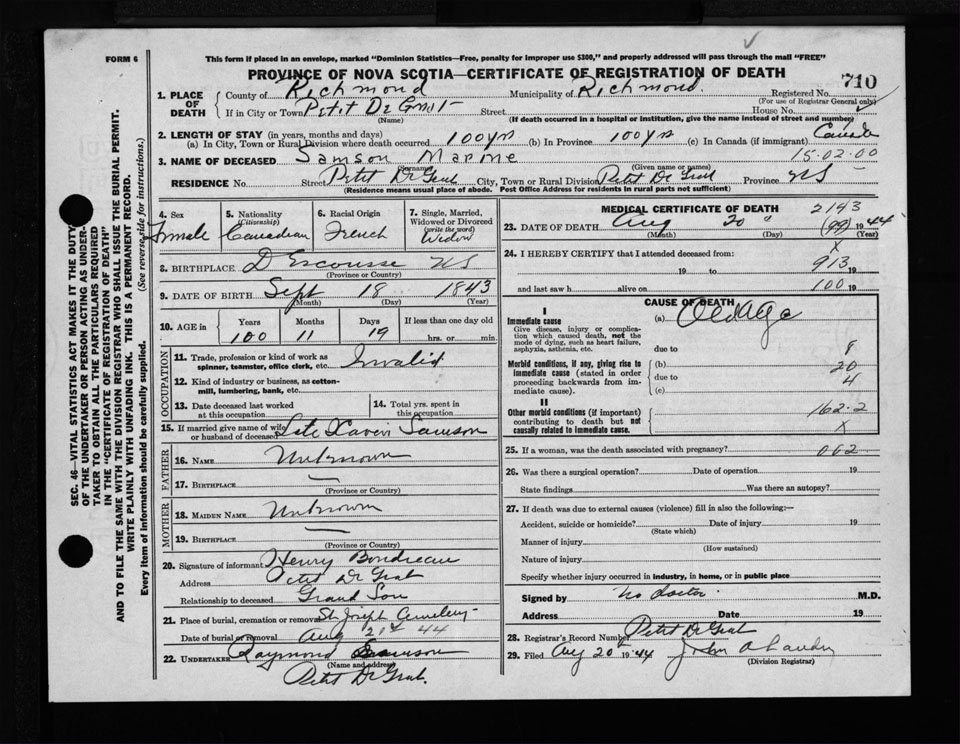 FORM 6
This form if placed in an envelope, marked "Dominion Statistics—Free, penalty for improper use $300," and properly addressed will pass through the mail "FREE"
PROVINCE OF NOVA SCOTIA—CERTIFICATE OF REGISTRATION OF DEATH
710
1. PLACE OF DEATH County of Richmond Municipality of Richmond. Registered No.
(For use of Registrar General only)
If in City or Town Petit De Grat Street House No.
(Name) (If death occurred in a hospital or institution, give the name instead of street and number)
2. LENGTH OF STAY (in years, months and days)
(a) In City, Town or Rural Division where death occurred 100 yrs (b) In Province 100 yrs (c) In Canada (if immigrant) Canada
15-02-00
3. NAME OF DECEASED Samson Marine
(Surname) (Given name or names)
RESIDENCE No. Street Petit De Grat City, Town or Rural Division Petit De Grat Province NS
(Residence means usual place of abode. Post Office Address for residents in rural parts not sufficient)
4. Sex Female
5. Nationality (Citizenship) Canadian
6. Racial Origin French
7. Single, Married, Widowed or Divorced (write the word) Widow
8. BIRTHPLACE D'Escousse NS
(Province or Country)
9. DATE OF BIRTH Sept 18 1843
(Month) (Day) (Year)
10. AGE in Years Months Days If less than one day old
100 11 19 hrs. or min.
OCCUPATION
11. Trade, profession or kind of work as spinner, teamster, office clerk, etc. Invalid
12. Kind of industry or business, as cotton-mill, lumbering, bank, etc.
13. Date deceased last worked at this occupation
14. Total yrs. spent in this occupation
15. If married give name of wife or husband of deceased Late Xavier Samson
FATHER
16. NAME Unknown
17. BIRTHPLACE —
(Province or Country)
MOTHER
18. MAIDEN NAME Unknown
19. BIRTHPLACE —
(Province or Country)
20. Signature of informant Henry Boudreau
Address Petit De Grat
Relationship to deceased Grand Son
21. Place of burial, cremation or removal St. Joseph Cemetery
Date of burial or removal Aug 21st 44
22. UNDERTAKER Raymond Samson
(Name and address)
Petit De Grat.
MEDICAL CERTIFICATE OF DEATH
2143
23. DATE OF DEATH Aug 20 (99) 1944
(Month) (Day) (Year)
X
24. I HEREBY CERTIFY that I attended deceased from:
19 to 913 19
and last saw h alive on 100 19
CAUSE OF DEATH
I
Immediate cause
Give disease, injury or complication which caused death, not the mode of dying, such as heart failure, asphyxia, asthenia, etc.
(a) Old Age
due to 8
Morbid conditions, if any, giving rise to immediate cause (stated in order proceeding backwards from immediate cause).
(b) 20
due to 4
(c)
II
Other morbid conditions (if important) contributing to death but not causally related to immediate cause.
162-2
X
25. If a woman, was the death associated with pregnancy? 062
26. Was there a surgical operation? Date of operation 19
State findings Was there an autopsy?
27. If death was due to external causes (violence) fill in also the following:—
Accident, suicide or homicide? Date of injury 19
(State which)
Manner of injury
(How sustained)
Nature of injury
Specify whether injury occurred in industry, in home, or in public place
Signed by No doctor M.D.
Address Date 19
28. Registrar's Record Number Petit De Grat
29. Filed Aug 20th 1944 John A
(Division Registrar)
SEC. 46—VITAL STATISTICS ACT MAKES IT THE DUTY
OF THE UNDERTAKER OR PERSON ACTING AS UNDER-
TAKER TO OBTAIN ALL THE PARTICULARS REQUIRED
IN THE "CERTIFICATE OF REGISTRATION OF DEATH"
AND TO FILE THE SAME WITH THE DIVISION REGISTRAR WHO SHALL ISSUE THE BURIAL PERMIT.
WRITE PLAINLY WITH UNFADING INK. THIS IS A PERMANENT RECORD.
Every item of information should be carefully supplied. (See reverse side for instructions.)